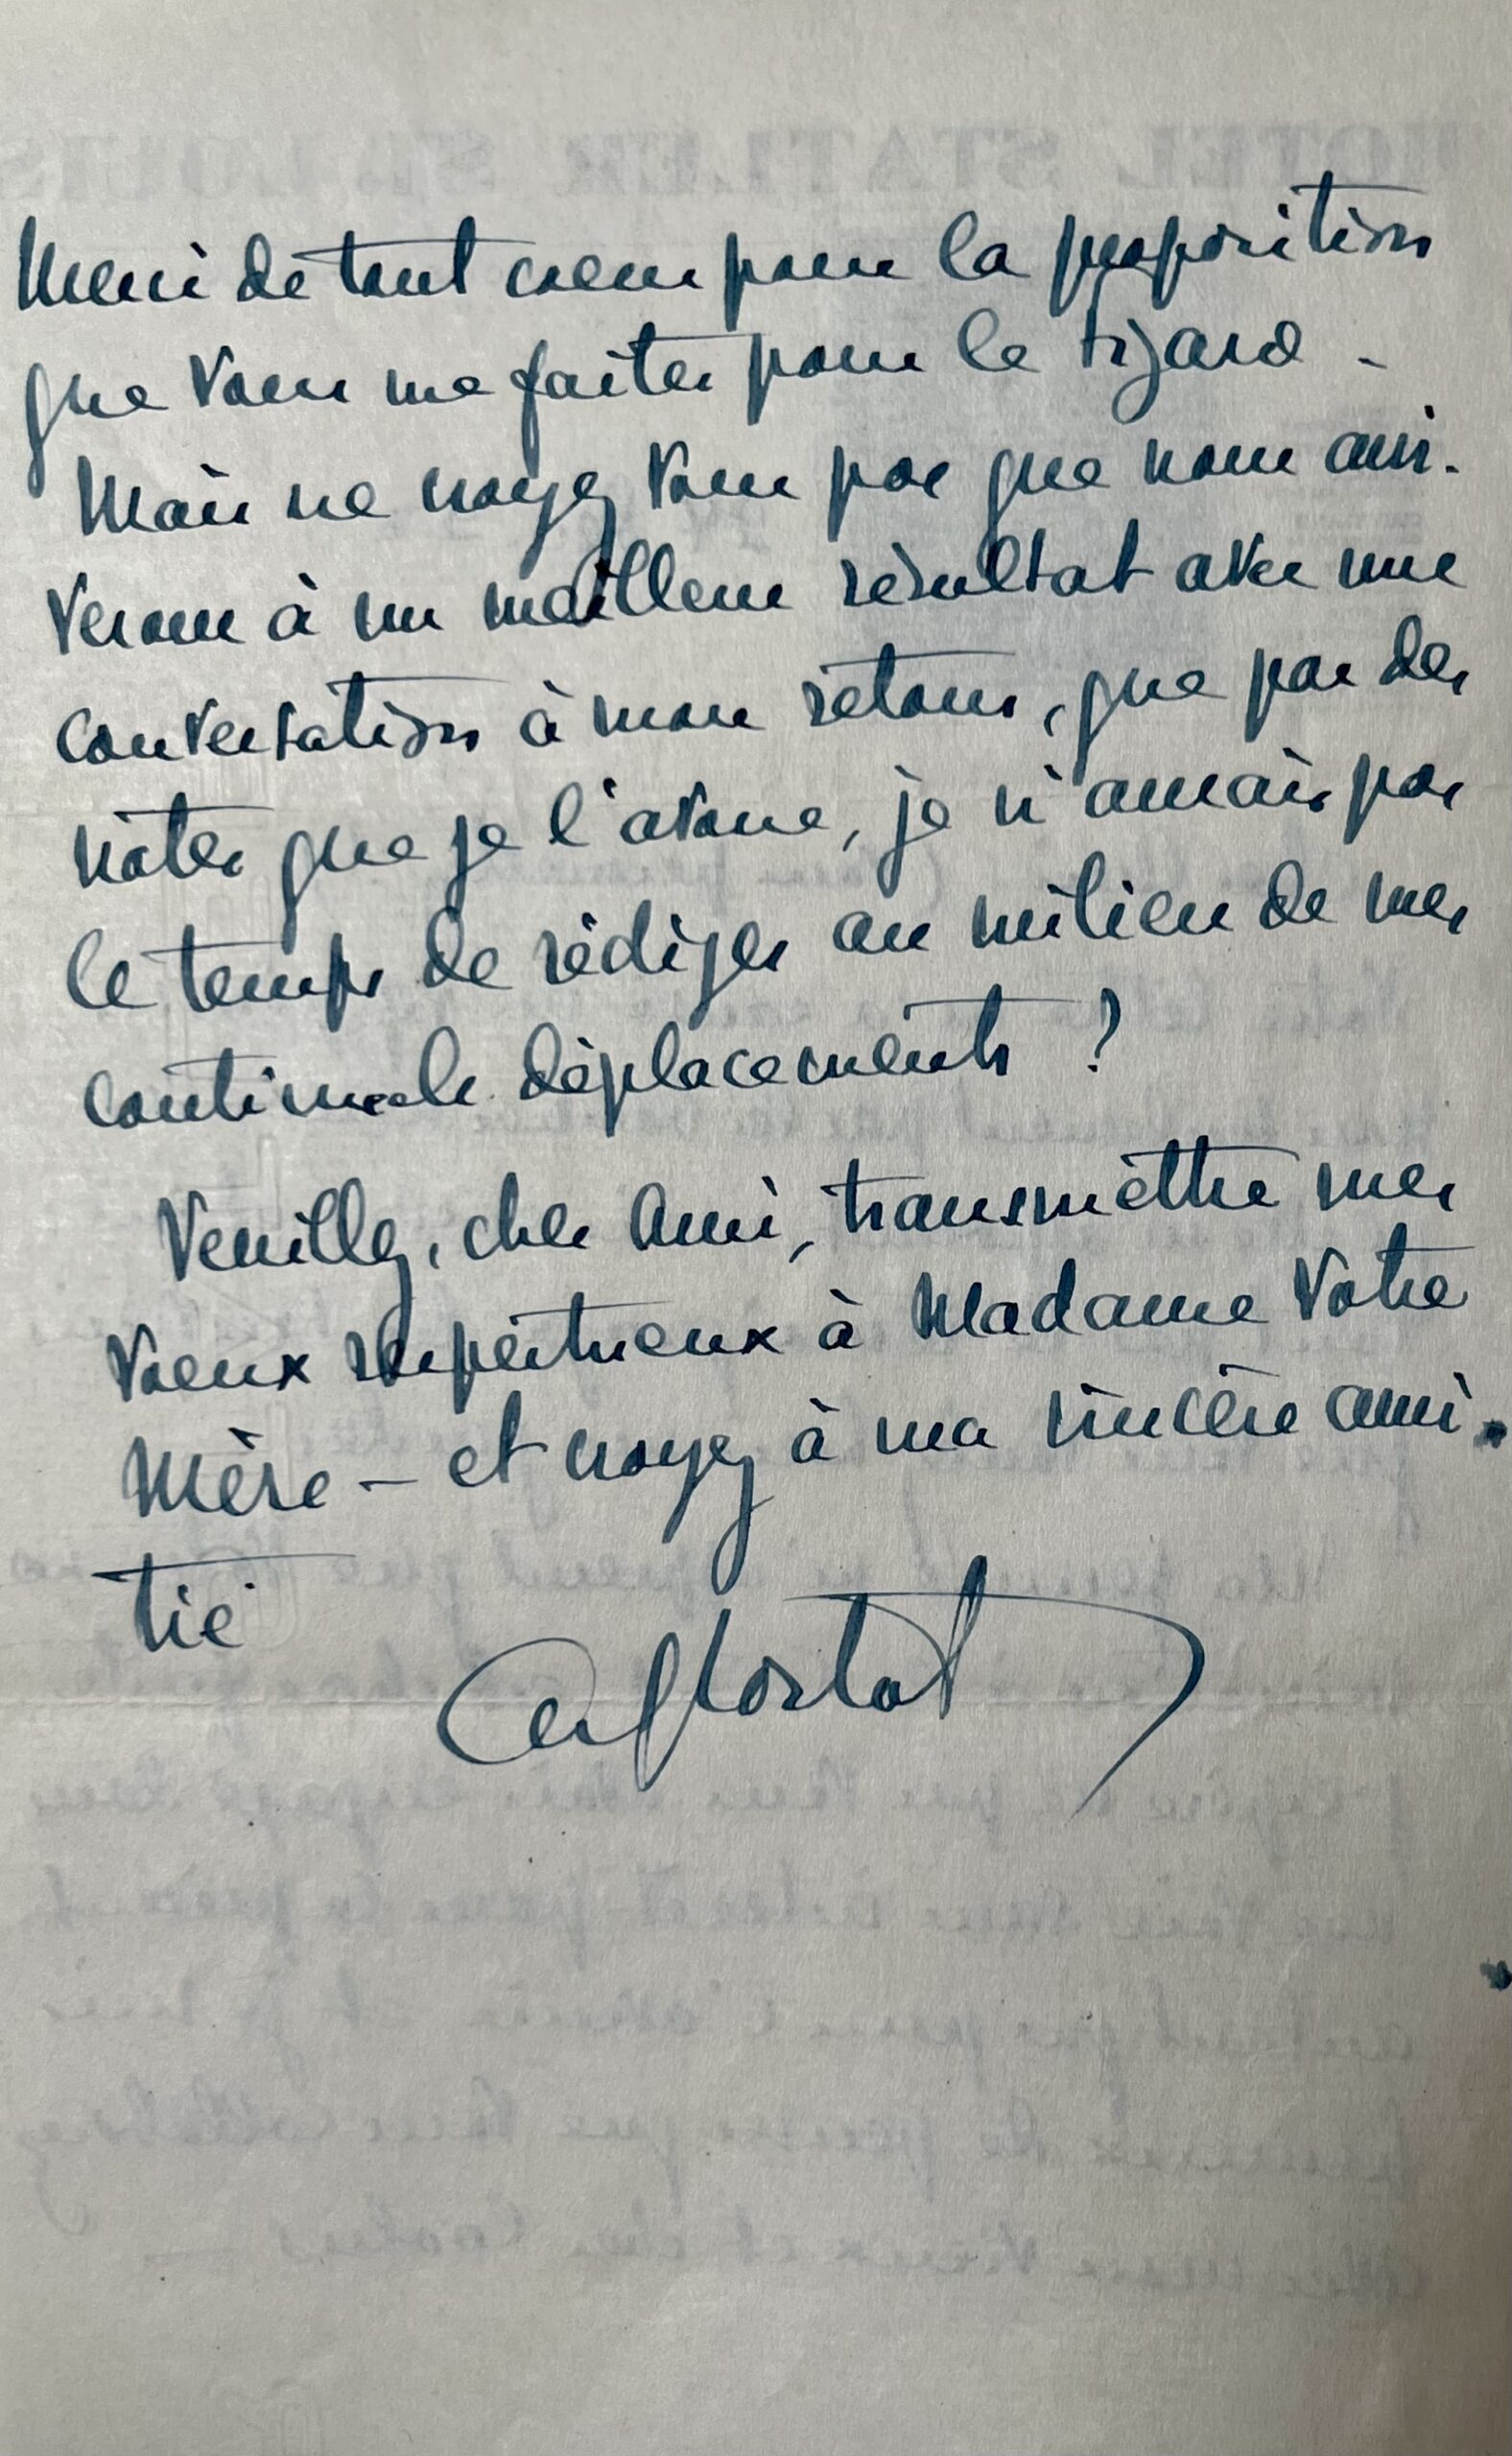 Merci de tout coeur pour la proposition
que vous me faites pour le
Mais ne croyez vous pas que nous arri-
verons à un meilleur résultat avec une
conversation à mon retour, que par des
notes que je l'avoue, je n'aurais pas
le temps de rédiger au milieu de mes
continuels déplacements ?
Veuillez, cher Ami, transmettre mes
voeux respectueux à Madame Votre
Mère – et croyez à ma sincère ami-
tié